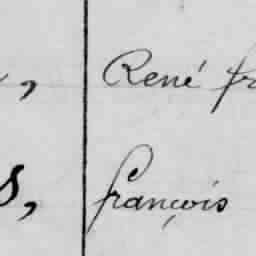 , René fr
s, françois